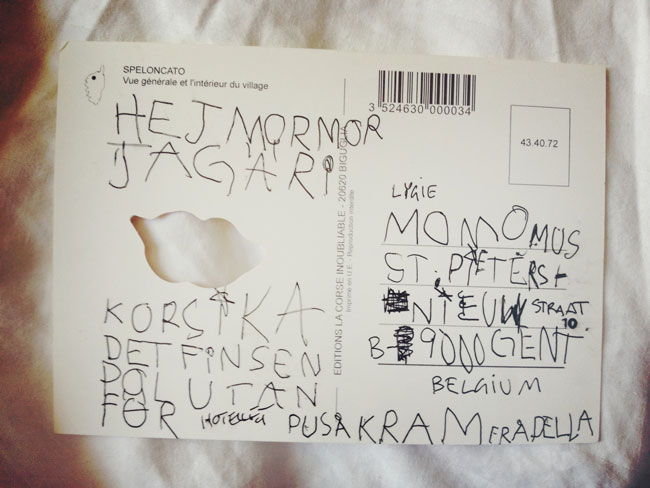 SPELONCATO
Vue générale et l'intérieur du village
HEJ MORMOR
JAG ÄR i
KORSIKA
DET FINSEN
POL UTAN
FÖR HOTELLET PUSÅKRAM FRA DELLA
EDITIONS LA CORSE INOUBLIABLE - 20620 BIGUGLIA
Imprimé en U.E. - Reproduction interdite
3 524630 000034
43.40.72
LYGIE
MOMOMUS
ST. PIETERS-
NIEUW STRAAT
10.
B-9000 GENT
BELGIUM